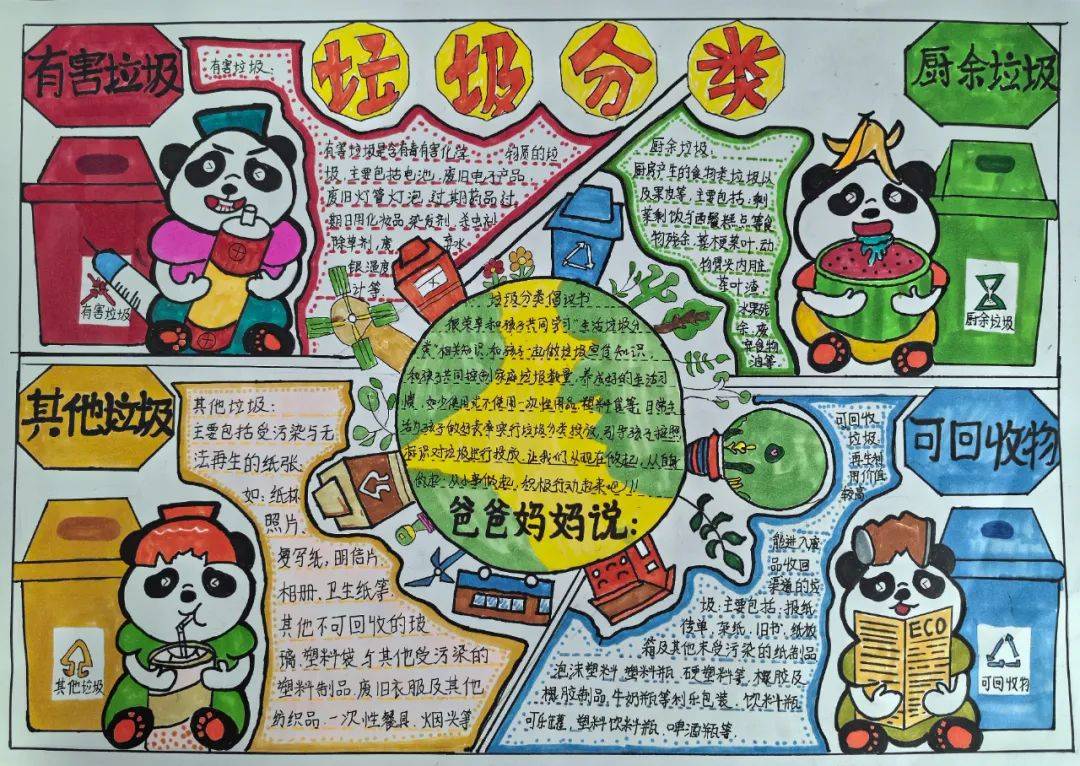 垃圾分类
有害垃圾
有害垃圾:
有害垃圾是含有毒有害化学 物质的垃
圾,主要包括电池,废旧电子产品,
废旧灯管灯泡,过期药品过
期日用化妆品,染发剂,杀虫剂
除草剂,废 弃水
银温度
计等.
有害垃圾
厨余垃圾
厨余垃圾
厨房产生的食物类垃圾以
及果皮等,主要包括:剩
菜剩饭与西餐糕点等食
物残余,菜梗菜叶,动
物 内脏,
茶叶渣,
水果残
余,废
弃食物
油等
厨余垃圾
垃圾分类倡议书
很荣幸和孩子共同学习"生活垃圾分
类"相关知识,和孩子一起做垃圾 知识,
和孩子共同控制家庭垃圾数量,养成好的生活习
惯,如少使用或不使用一次性用品,塑料袋等,日常生
活与孩子 实行垃圾分类投放,引导孩子按照
标识对垃圾进行投放,让我们从现在做起,从自身
做起,从小事做起,积极行动起来吧!!!
爸爸妈妈说:
其他垃圾
其他垃圾:
主要包括受污染与无
法再生的纸张.
如:纸杯
照片、
复写纸,明信片
相册,卫生纸等
其他不可回收的玻
璃,塑料袋与其他受污染的
塑料制品,废旧衣服及其他
纺织品,一次性餐具,烟头等
其他垃圾
可回收物
可回收
垃圾:
再生利
用价值
较高
能进入废
品收回
渠道的垃
圾:主要包括:报纸
传单,杂纸,旧书,纸板
箱及其他未受污染的纸制品
泡沫塑料,塑料瓶,硬塑料等,橡胶及
橡胶制品,牛奶瓶等利乐包装,饮料瓶
可乐罐,塑料饮料瓶,啤酒瓶等.
ECO
可回收物